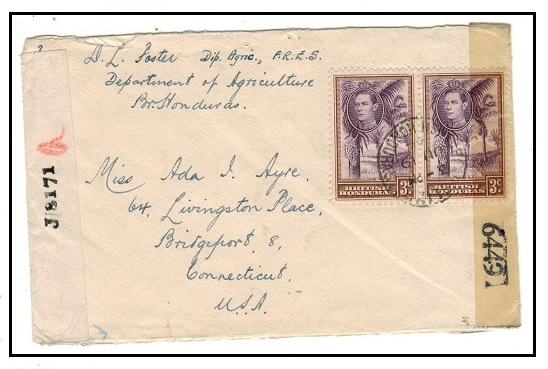 D. L. Foster Dip. Agric., F.R.E.S.
Department of Agriculture
Br. Honduras.
Miss Ada I. Ayre.
64, Livingston Place,
Bridgeport, 8,
Connecticut.
U.S.A.
BRITISH HONDURAS 3c
BRITISH HONDURAS 3c
J/8171
6449